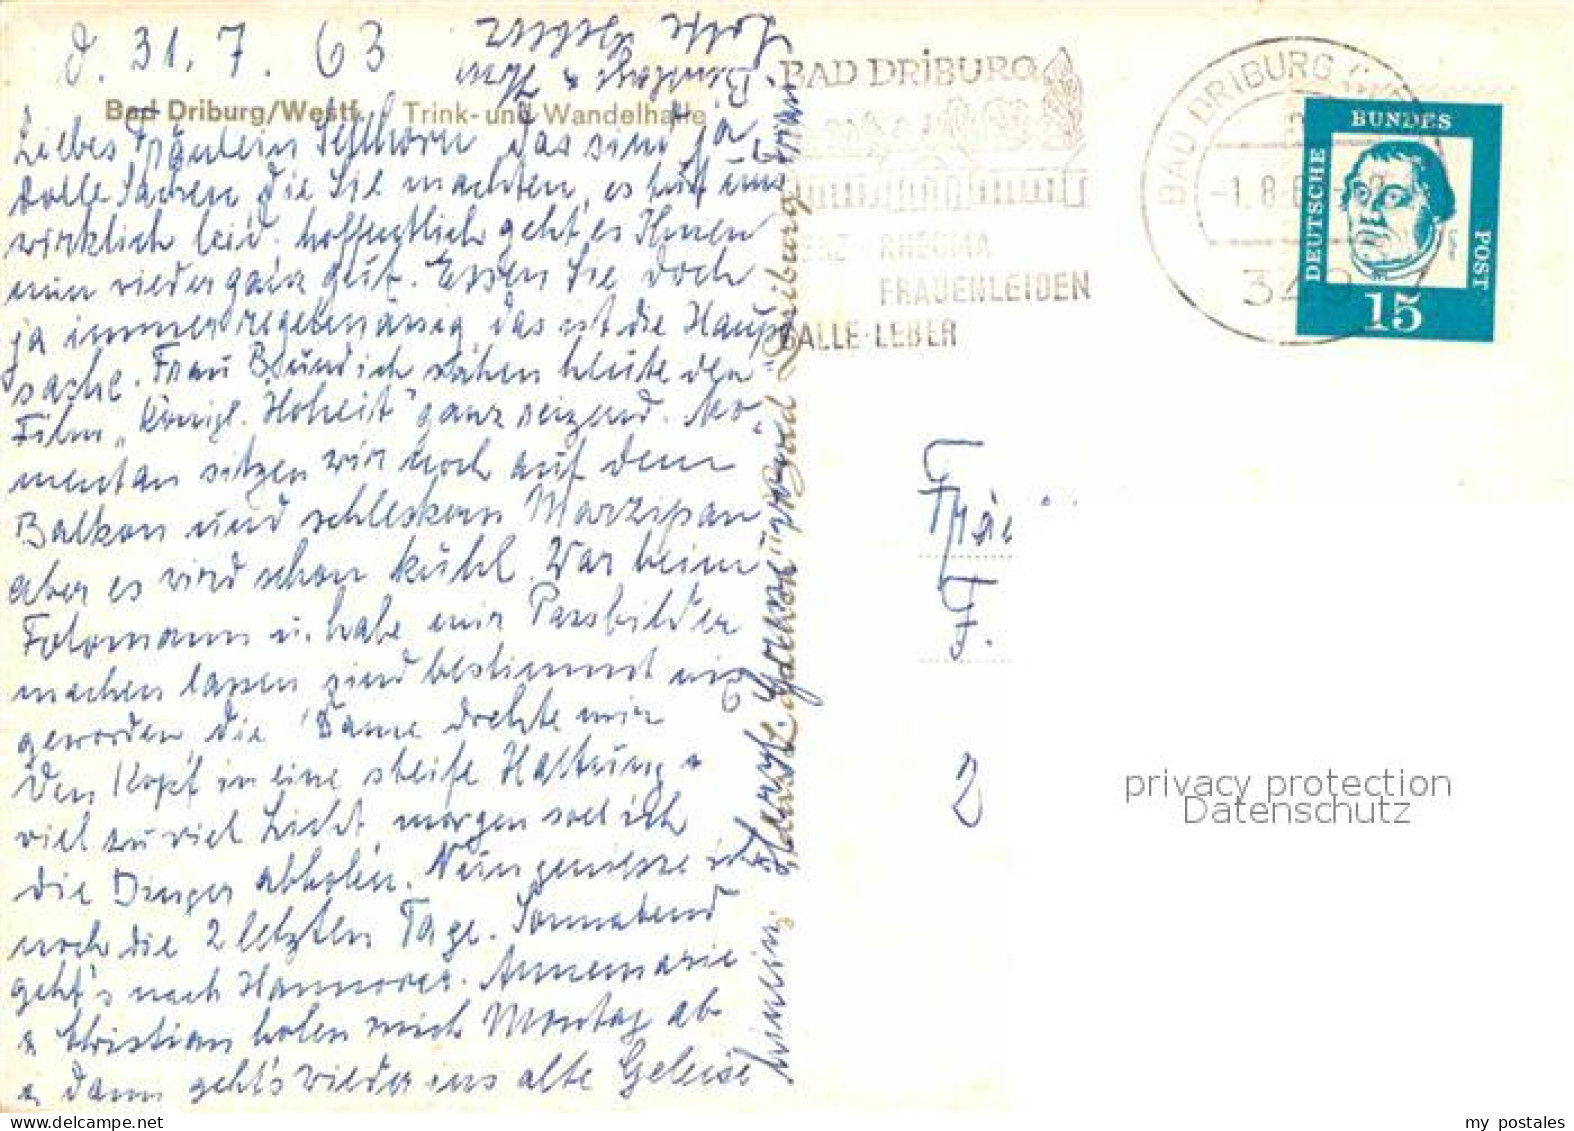 d. 31. 7. 63
Bad Driburg/Westf. Trink- und Wandelhalle
Liebes Fräulein Sehlhorn, das sind ja
tolle Sachen die Sie machten, es tut uns
wirklich leid. hoffentlich geht's Ihnen
nun wieder ganz gut. Essen Sie doch
ja immer regelmässig das ist die Haupt
sache. Frau B. und ich sahen heute den
Film „Königl. Hoheit" ganz reizend. Mo-
mentan sitzen wir noch auf dem
Balkon und schleckern Marzipan
aber es wird schon kühl. War beim
Fotomann u. habe mir Passbilder
machen lassen sind bestimmt nix
geworden, die Dame drehte mir
den Kopf in eine steife Haltung &
viel zu viel Licht morgen soll ich
die Dinger abholen. Nun geniesse ich
noch die 2 letzten Tage. Sonnabend
geht's nach Hannover. Annemarie
& Christian holen mich Montag ab
& dann geht's wieder ins alte Geleise
hinein. Herzl. Grüsse von
Lotte
BAD DRIBURG
HERZ · RHEUMA
FRAUENLEIDEN
GALLE·LEBER
BAD DRIBURG
-1.8.6
349
DEUTSCHE
BUNDES
POST
15
F.
2
privacy protection
Datenschutz
my postales
www.delcampe.net